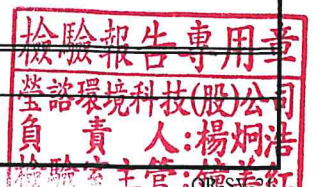 檢驗報告專用章
瑩諮環境科技(股)公司
負責人:楊炯浩
檢驗室主管: